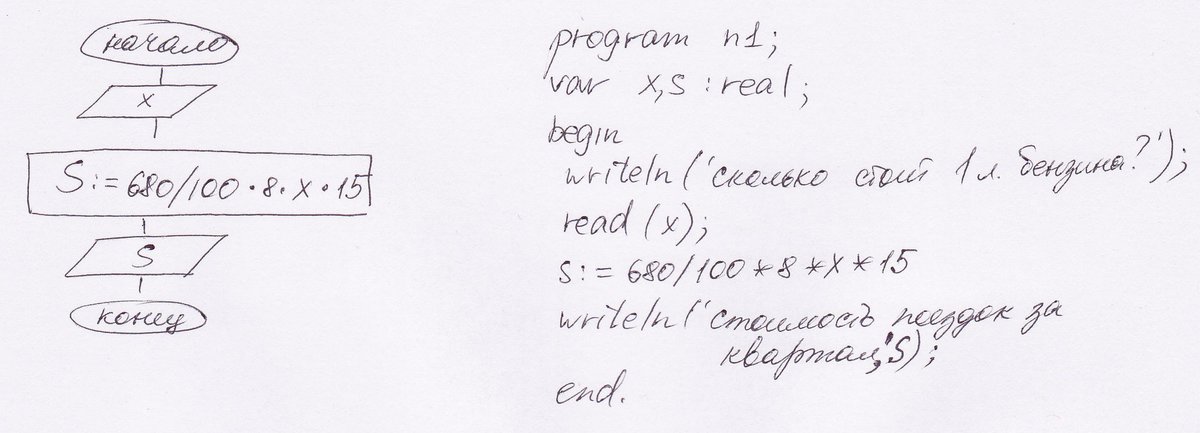 начало
x
S:=680/100·8·x·15
S
конец
program n1;
var x,s:real;
begin
writeln('сколько стоит 1 л. бензина?');
read(x);
s:=680/100*8*x*15
writeln('стоимость поездок за
квартал,'S);
end.